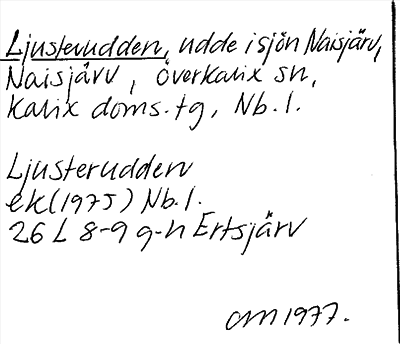 Ljusterudden, udde i sjön Naisjärv,
Naisjärv, Överkalix sn,
Kalix doms.tg, Nb.l.
Ljusterudden
ek(1975) Nb.l.
26 L 8-9 g-h Ertsjärv
CM 1977.